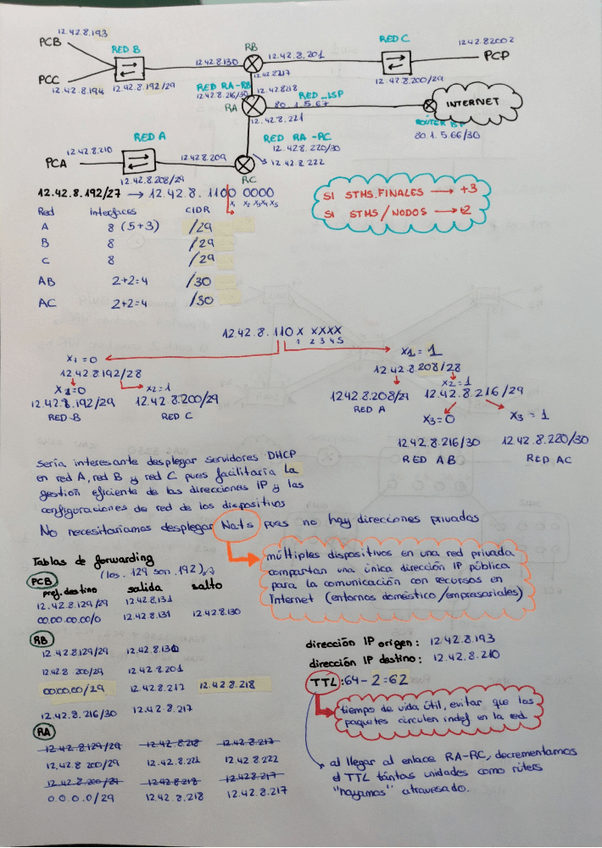 12.42.8.193
PCB
RED B
12.42.8.130
RB
12.42.8.201
RED C
12.42.8.2002
PCP
12.42.8.217
PCC
12.42.8.194
12.42.8.192/29
RED RA-RB
12.42.8.216/30
12.42.8.218
RED_ISP
12.42.8.200/29
RA
80.1.5.67
INTERNET
12.42.8.221
80.1.5.66/30
RED A
RED RA-RC
12.42.8.220/30
12.42.8.210
PCA
12.42.8.209
12.42.8.222
12.42.8.208/29
RC
12.42.8.192/27 → 12.42.8.1100 0000
x₁ x₂ x₃ x₄ x₅
SI STMS.FINALES → +3
SI STMS/NODOS → +2
Red Interfaces CIDR
A 8 (5+3) /29
B 8 /29
C 8 /29
AB 2+2=4 /30
AC 2+2=4 /30
12.42.8.110x xxxx
1 2 3 4 5
x₁=0
x₁=1
12.42.8.192/28
12.42.8.208/28
x₂=0
x₂=1
x₂=1
12.42.8.192/29
12.42.8.200/29
12.42.8.208/29
12.42.8.216/29
RED B
RED C
RED A
x₃=0
x₃=1
12.42.8.216/30
12.42.8.220/30
RED AB
RED AC
sería interesante desplegar servidores DHCP
en red A, red B y red C pues facilitaría la
gestion eficiente de las direcciones IP y las
configuraciones de red de los dispositivos
No necesitaríamos desplegar Nats pues no hay direcciones privadas
múltiples dispositivos en una red privada
compartan una única dirección IP pública
para la comunicación con recursos en
Internet (entornos doméstico/empresariales)
Tablas de forwarding
(los .129 son .192)
PCB
pref.destino salida salto
12.42.8.129/29 12.42.8.131
00.00.00.00/0 12.42.8.131 12.42.8.130
RB
12.42.8.129/29
12.42.8.200/29 12.42.8.201
00.00.00/29 12.42.8.217 12.42.8.218
12.42.8.216/30 12.42.8.217
RA
12.42.8.129/29 12.42.8.218 12.42.8.217
12.42.8.200/29 12.42.8.221 12.42.8.222
12.42.8.200/29 12.42.8.218 12.42.8.217
0.0.0.0/29 12.42.8.218 12.42.8.217
dirección IP origen: 12.42.8.193
dirección IP destino: 12.42.8.210
TTL:64-2=62
tiempo de vida útil, evitar que los
paquetes circulen indef en la red.
al llegar al enlace RA-RC, decrementamos
el TTL tantas unidades como rúters
"hayamos" atravesado.